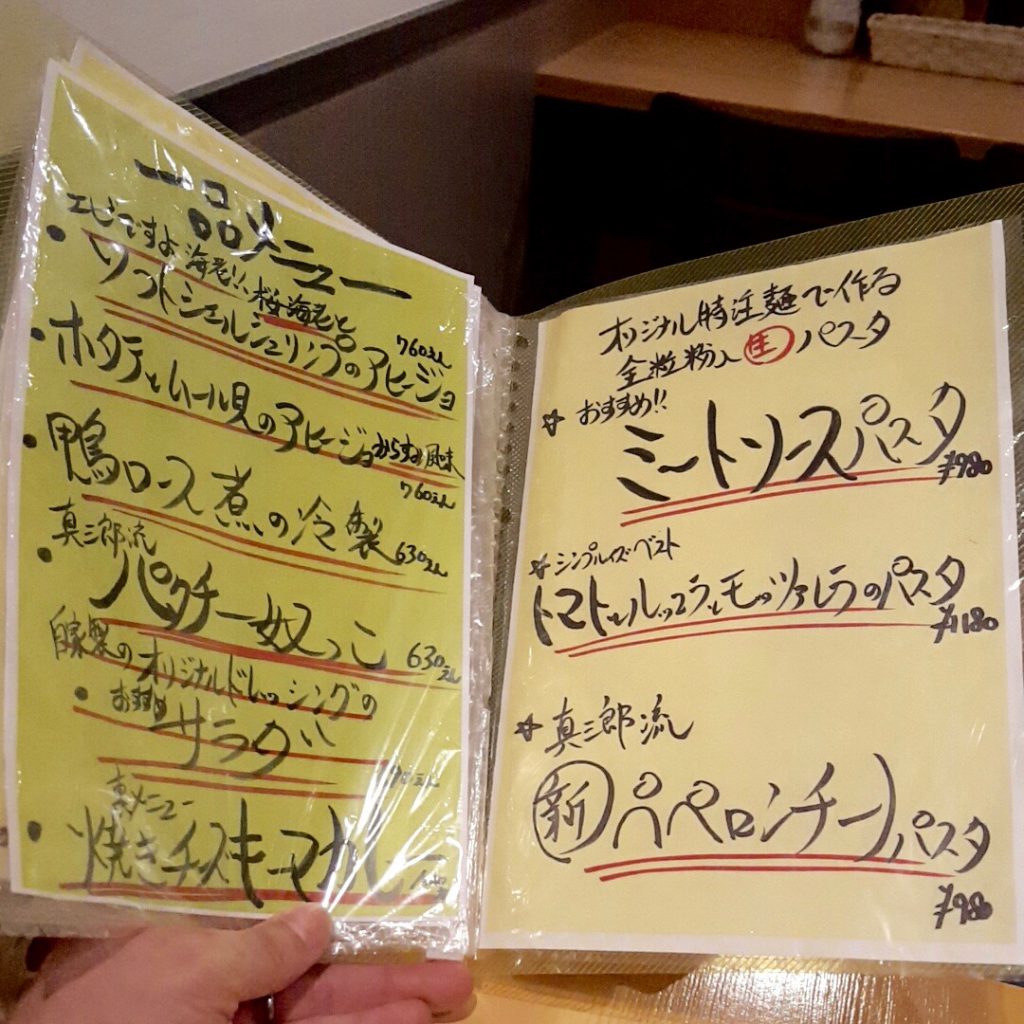 一品メニュー
エビですよ海老!! 桜海老と
・ソフトシェルシュリンプのアヒージョ
760えん
・ホタテとムール貝のアヒージョ からすみ風味
760えん
・鴨ロース煮の冷製
630えん
真三郎流
・パクチー奴っこ
630えん
自家製のオリジナルドレッシングの
・お野菜サラダ
裏メニュー
・焼きチーズキーマカレー
オリジナル特注麺で作る
全粒粉入 生 パスタ
☆おすすめ!!
ミートソースパスタ
¥980
☆シンプルイズベスト
トマトとルッコラとモッツァレラのパスタ
¥1180
☆真三郎流
新 ペペロンチーノパスタ
¥980